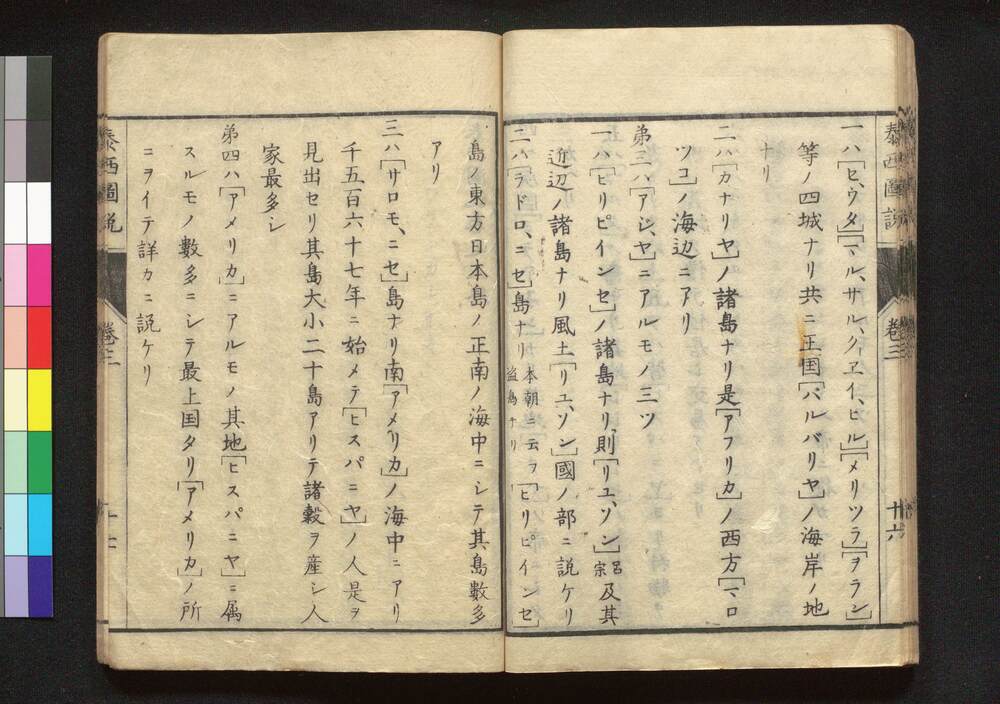 泰西圖説
卷三
十六
一ハ[セ、ウタ][マル、サル、クヱイ、ビル][メリツラ][ヲラン]
等ノ四城ナリ共ニ王国[バルバリヤ]ノ海岸ノ地
ナリ
二ハ[カナリヤ]ノ諸島ナリ是[アフリカ]ノ西方[マロ
ツコ]ノ海辺ニアリ
第三ハ[アシ、ヤ]ニアルモノ三ツ
一ハ[ヒリピインセ]ノ諸島ナリ則[リユ、ソン]呂宗及其
近辺ノ諸島ナリ風土[リユ、ソン]國ノ部ニ説ケリ
二ハ[ラドロ、ニセ]島ナリ本朝ニ云フ盗島ナリ[ヒリピインセ]
島ノ東方日本島ノ正南ノ海中ニシテ其島數多
アリ
三ハ[サロモ、ニセ]島ナリ南[アメリカ]ノ海中ニアリ
千五百六十七年ニ始メテ[ヒスパニヤ]ノ人是ヲ
見出セリ其島大小二十島アリテ諸穀ヲ産シ人
家最多シ
第四ハ[アメリカ]ニアルモノ其地[ヒスパニヤ]ニ属
スルモノ數多ニシテ最上国タリ[アメリカ]ノ所
ニヲイテ詳カニ説ケリ
泰西圖説
卷三